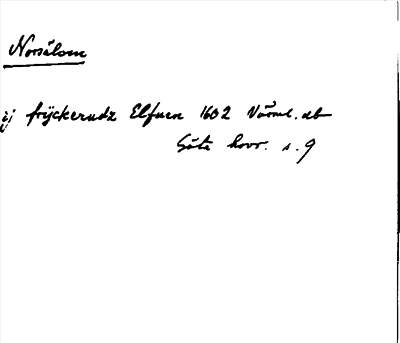 Norsälven
ij fryckerudz Elfuen 1602 Värml. ab
Göta hovr. s. 9